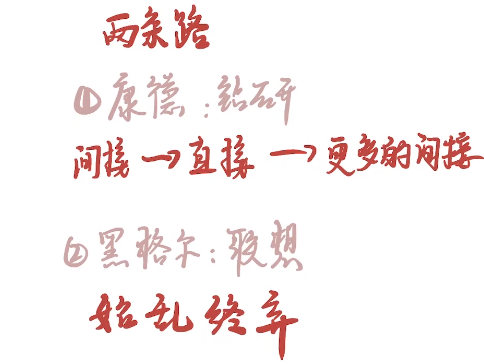 两条路
①康德：钻研
间接→直接→更多的间接
②黑格尔：联想
始乱终弃